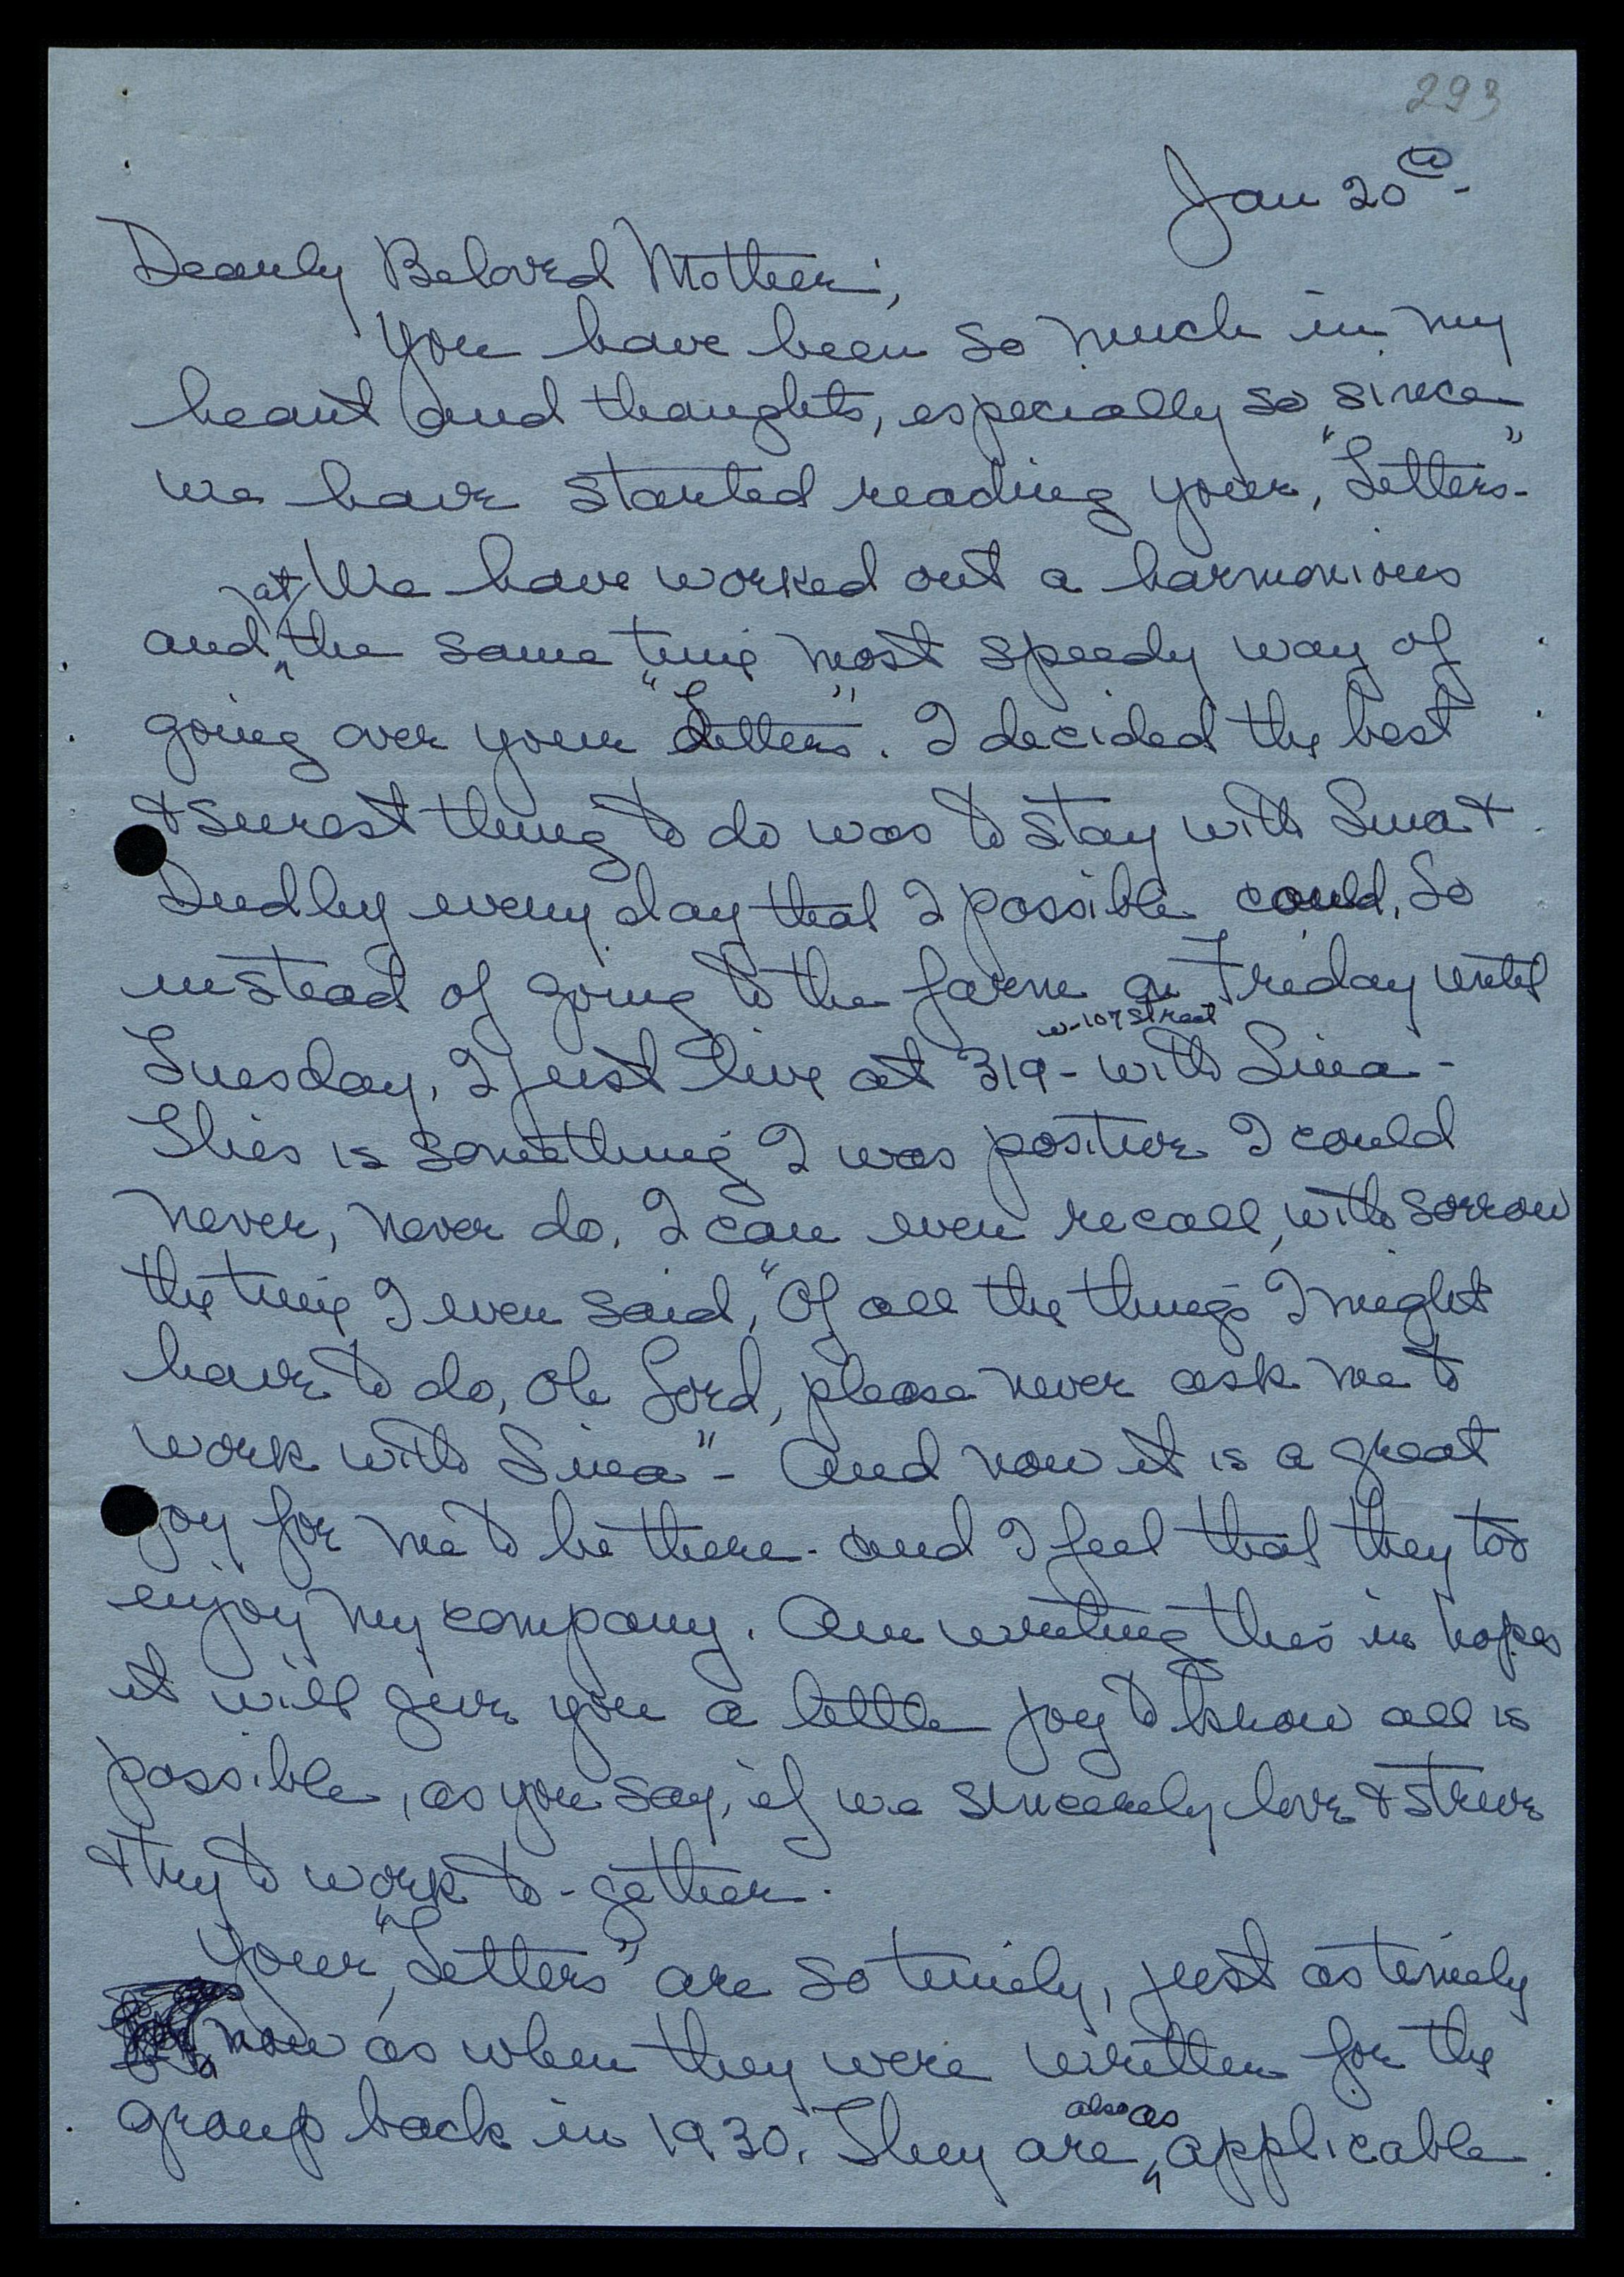 293
Jan 20th -
Dearly Beloved Mother;
You have been so much in my
heart and thoughts, especially so since
we have started reading your, "Letters"-
We have worked out a harmonious
and at the same time most speedy way of
going over your "Letters". I decided the best
& surest thing to do was to stay with Sina &
Dudley every day that I possible could. So
instead of going to the farm on Friday until
Tuesday, I just live at 319 - w-107 Street with Sina -
This is something I was positive I could
never, never do. I can even recall, with sorrow
the time I even said, "Of all the things I might
have to do, Oh Lord, please never ask me to
work with Sina" - And now it is a great
joy for me to be there - and I feel that they too
enjoy my company. Am writing this in hopes
it will give you a little joy to know all is
possible, as you say, if we sincerely love & strive
& try to work to-gether.
Your, "Letters" are so timely, just as timely
now as when they were written for the
group back in 1930. They are also as applicable